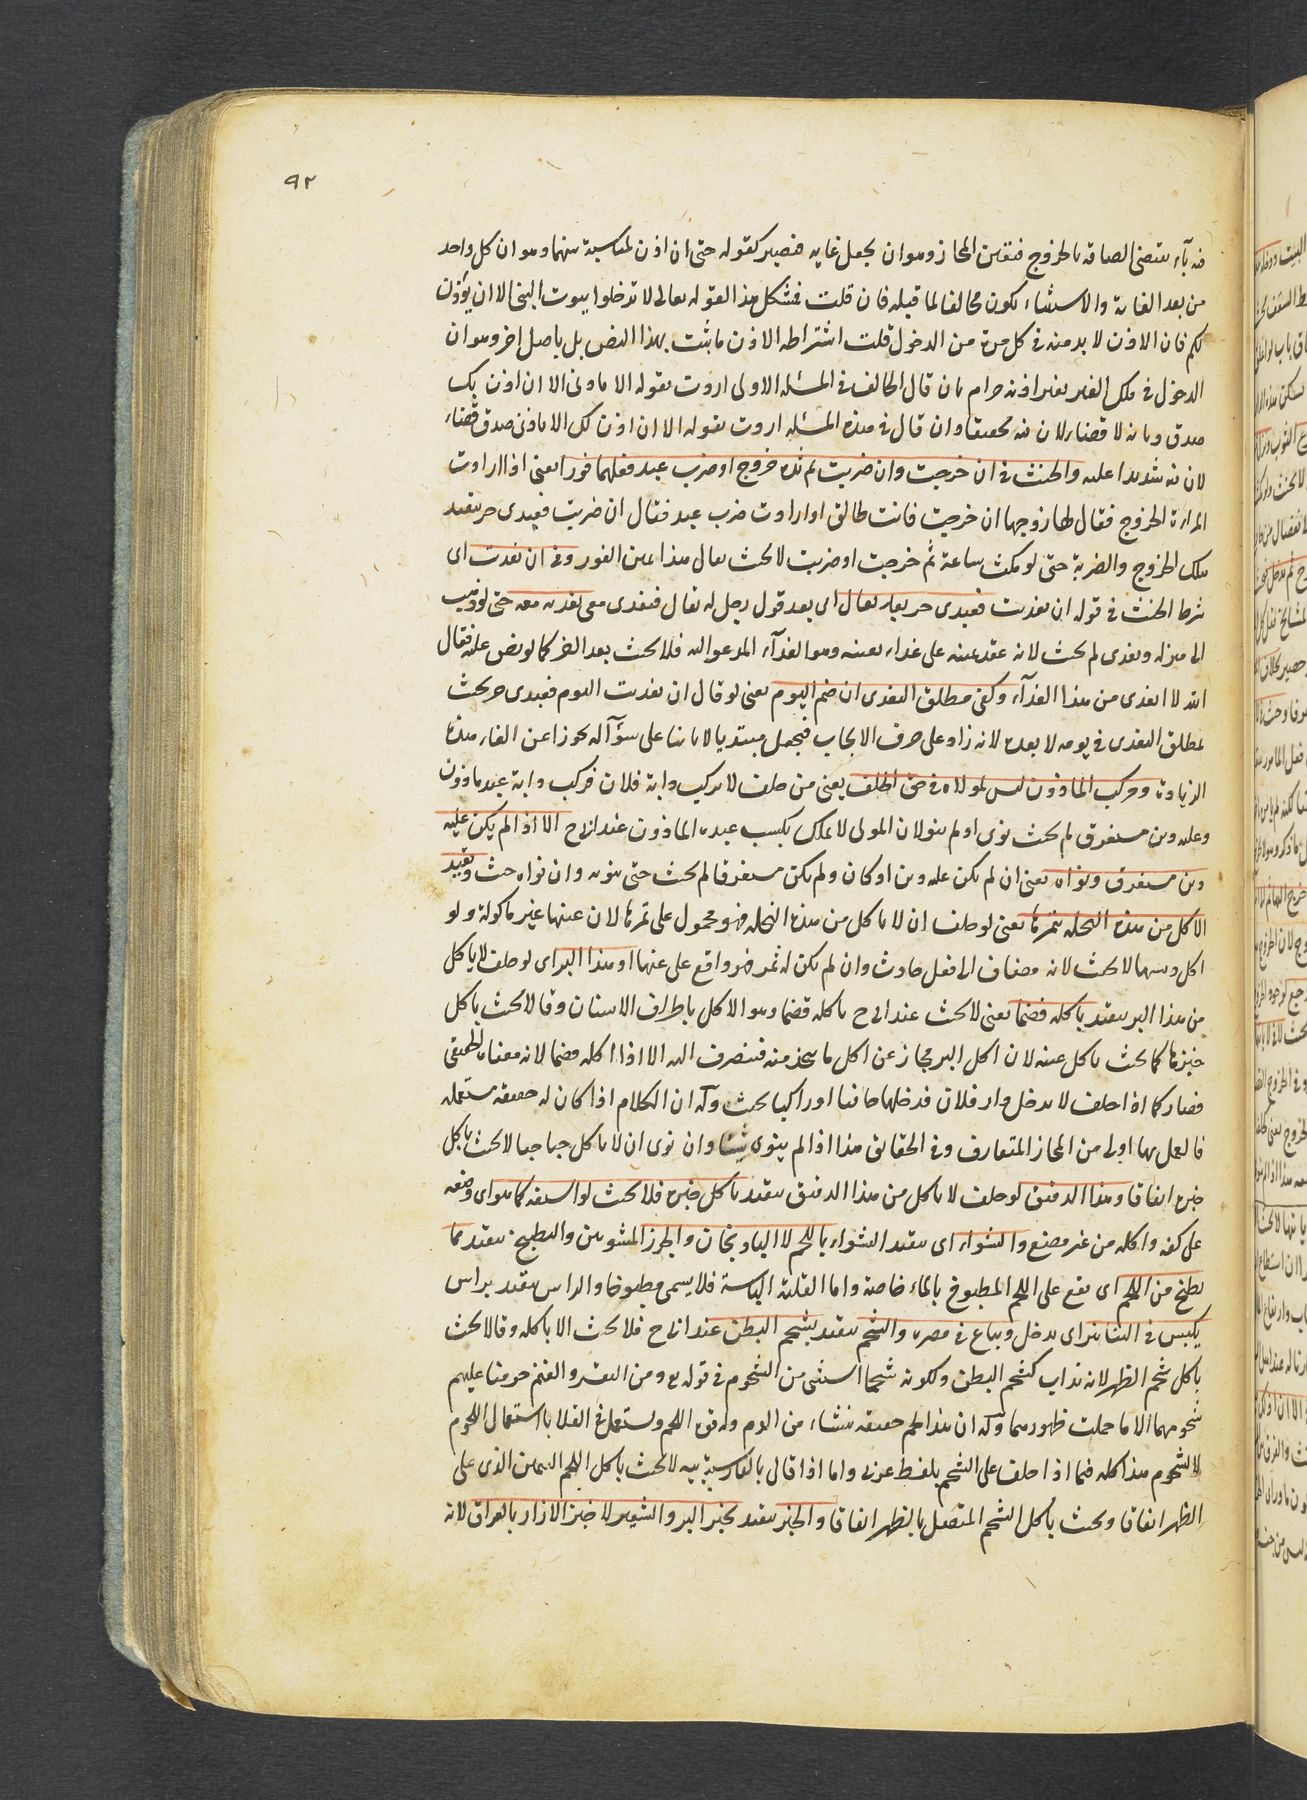 ٩٢
فيه باء يقتضى الصاقه بالخروج فتعين المجاز وهو ان يجعل غاية فيصير كقوله حتى ان اذن لمناسبة بينهما وهو ان كل واحد
من بعد الغاية والاستثناء يكون مخالفا لما قبله فان قلت فشكل هذا لقوله تعالى لا تدخلوا بيوت النبى الا ان يؤذن
لكم فان الاذن لا بد منه فى كل مرة من الدخول قلت اشتراطه الاذن ما ثبت بهذا النص بل باصل اخر وهو ان
الدخول فى ملك الغير بغير اذنه حرام بان قال الحالف فى المسئلة الاولى اردت بقوله الا باذنى الا ان اذن لك
صدق ديانة لا قضاء لان فيه تخفيفا وان قال فى هذه المسئلة اردت بقوله الا ان اذن لك الا باذنى صدق قضاء
لان فيه تشديدا عليه والحنث فى ان خرجت وان ضربت لمريدة خروج او ضرب عبد فعلهما فورا يعنى اذا ارادت
المراءة الخروج فقال لها زوجها ان خرجت فانت طالق او ارادت ضرب عبد فقال ان ضربت فعبدى حر يتقيد
بتلك الخروج والضربة حتى لو مكث ساعة ثم خرجت او ضربت لا يحنث يقال هذا يمين الفور وفى ان تغديت اى
شرط الحنث فى قوله ان تغديت فعبدى حر بعد تعال اى بعد قول رجل له تعال فتغدى معى تغديه معه حتى لو ذهب
الى منزله وتغدى لم يحنث لانه عقد يمينه على غداء بعينه وهو الغداء المدعو اليه فلا يحنث بعد الغير كما لو نص عليه فقال
الله لا اتغدى من هذا الغداء وكفى مطلق التغدى ان ضم اليوم يعنى لو قال ان تغديت اليوم فعبدى حر يحنث
بمطلق التغدى فى يومه لا بعده لانه زاد على حرف الايجاب فيجعل مبتديا لا بانيا على سؤاله تحوزا عن الغاء هذه
الزيادة ومركب الماذون ليس لمولاه فى حق الحلف يعنى من حلف لا يركب دابة فلان فركب دابة عبد ماذون
وعليه دين مستغرق لم يحنث نوى او لم ينو لان المولى لا يملك بكسب عبده الماذون عند ابى ح الا اذا لم يكن عليه
دين مستغرق ونواه يعنى ان لم يكن عليه دين او كان ولم يكن مستغرقا لم يحنث حتى ينويه وان نواه حنث ويقيد
الاكل من هذه النخلة بثمرها يعنى لو حلف ان لا ياكل من هذه النخلة فهو محمول على ثمرها لان عينها غير ماكولة ولو
اكل دبسها لا يحنث لانه مضاف الى فعل حادث وان لم يكن له ثمر فهو واقع على عينها او هذا البر اى لو حلف لا ياكل
من هذا البر يتقيد باكله قضما يعنى لا يحنث عند ابى ح باكله قضما وهو الاكل باطراف الاسنان وقالا يحنث باكل
خبزها كما يحنث باكل عينه لان اكل البر مجاز عن اكل ما يتخذ منه فينصرف اليه الا اذا اكله قضما لانه معناه الحقيقى
فصار كما اذا حلف لا يدخل دار فلان فدخلها حافيا او راكبا يحنث وله ان الكلام اذا كان له حقيقة مستعملة
فالعمل بها اولى من المجاز المتعارف وفى الحقائق هذا اذا لم ينوى شيئا وان نوى ان لا ياكل حبا حبا لا يحنث باكل
خبزه اتفاقا وهذا الدقيق لو حلف لا ياكل من هذا الدقيق يتقيد باكل خبزه فلا يحنث لو استفه كما هو اى وضعه
على كفه واكله من غير مضغ والشواء اى يتقيد الشواء باللحم لا الباذنجان والجزر المشويين والطبيخ يتقيد بما
يطبخ من اللحم اى يقع على اللحم المطبوخ بالماء خاصة واما القلية اليابسة فلا يسمى مطبوخا والراس يتقيد براس
يكبس فى التنانير اى يدخل ويباع فى مصره والشحم يتقيد بشحم البطن عند ابى ح فلا يحنث الا باكله وقالا يحنث
باكل شحم الظهر لانه يذاب كشحم البطن ولكونه شحما استثنى من الشحوم فى قوله تع ومن البقر والغنم حرمنا عليهم
شحومهما الا ما حملت ظهورهما وله ان هذا لحم حقيقة ينشاء من الدم وله قوة اللحم ويستعمل فى القلايا استعمال اللحوم
لا الشحوم هذا كله فيما اذا حلف على الشحم بلفظ عربى واما اذا قال بالفارسية پيه لا يحنث باكل اللحم السمين الذى على
الظهر اتفاقا ويحنث باكل الشحم المتصل بالظهر اتفاقا والخبز يتقيد بخبز البر والشعير لا خبز الارز بالعراق لانه